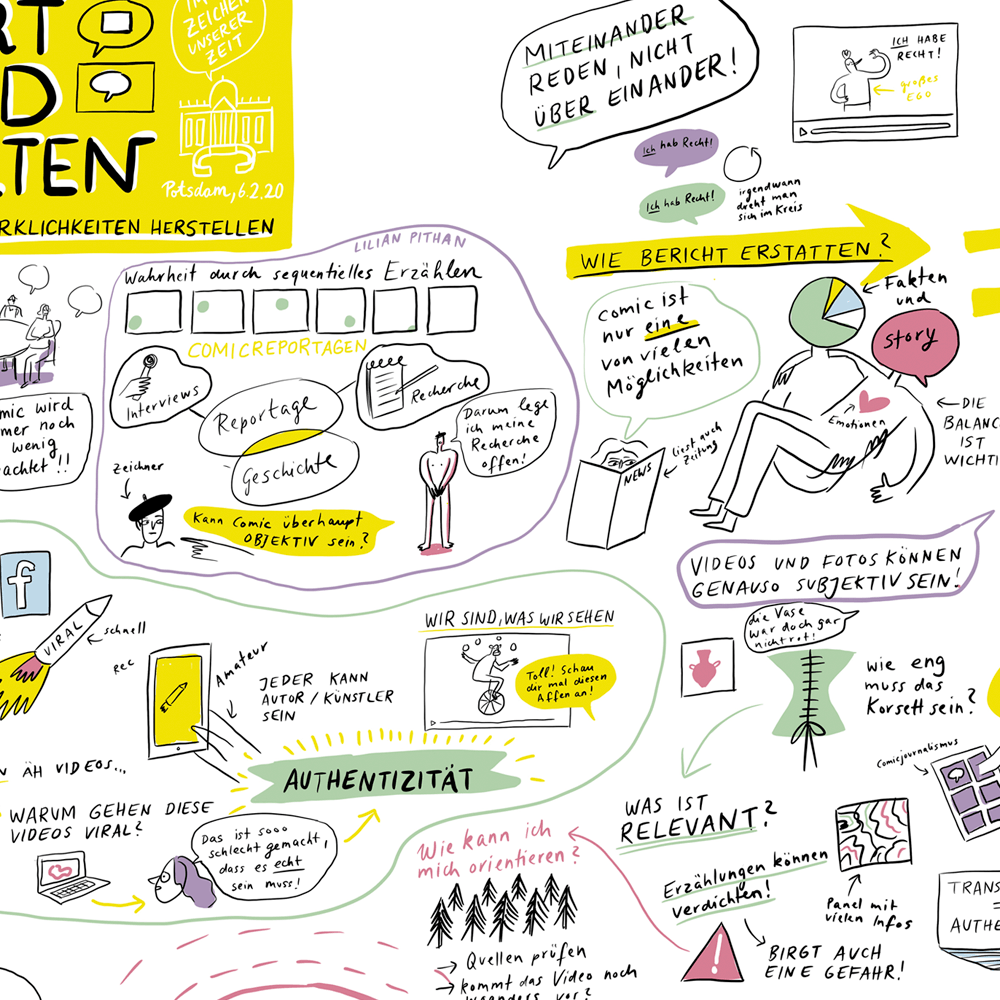 IM
ZEICHEN
UNSERER
ZEIT
Potsdam, 6.2.20
HERSTELLEN
MITEINANDER
REDEN, NICHT
ÜBER EINANDER!
ICH HABE
RECHT!
großes
EGO
Ich hab Recht!
Ich hab Recht!
irgendwann
dreht man
sich im Kreis
LILIAN PITHAN
Wahrheit durch sequentielles Erzählen
COMICREPORTAGEN
Interviews
Reportage
Recherche
Geschichte
Darum lege
ich meine
Recherche
offen!
Zeichner
Kann Comic überhaupt
OBJEKTIV sein?
wird
noch
wenig
WIE BERICHT ERSTATTEN?
Comic ist
nur eine
von vielen
Möglichkeiten
NEWS
liest auch
Zeitung
Fakten
und
Story
Emotionen
DIE
BALANC
IST
WICHTI
VIDEOS UND FOTOS KÖNNEN
GENAUSO SUBJEKTIV SEIN!
die Vase
war doch gar
nicht rot!
wie eng
muss das
Korsett sein?
f
VIRAL
schnell
REC
Amateur
JEDER KANN
AUTOR/KÜNSTLER
SEIN
WIR SIND, WAS WIR SEHEN
Toll! Schau
dir mal diesen
Affen an!
AUTHENTIZITÄT
ÄH VIDEOS...
WARUM GEHEN DIESE
VIDEOS VIRAL?
Das ist sooo
schlecht gemacht,
dass es echt
sein muss!
Wie kann ich
mich orientieren?
Quellen prüfen
kommt das Video noch
woanders vor?
WAS IST
RELEVANT?
Erzählungen können
verdichten!
BIRGT AUCH
EINE GEFAHR!
Panel mit
vielen Infos
Comicjournalismus
TRANS
=
AUTHE